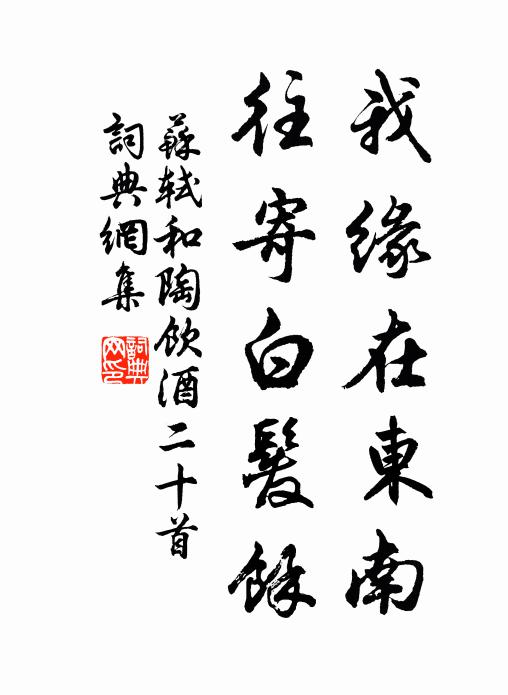 我緣在東南
往寄白髮餘
蘇軾和陶飲酒二十首
詞典網集
詞典網印